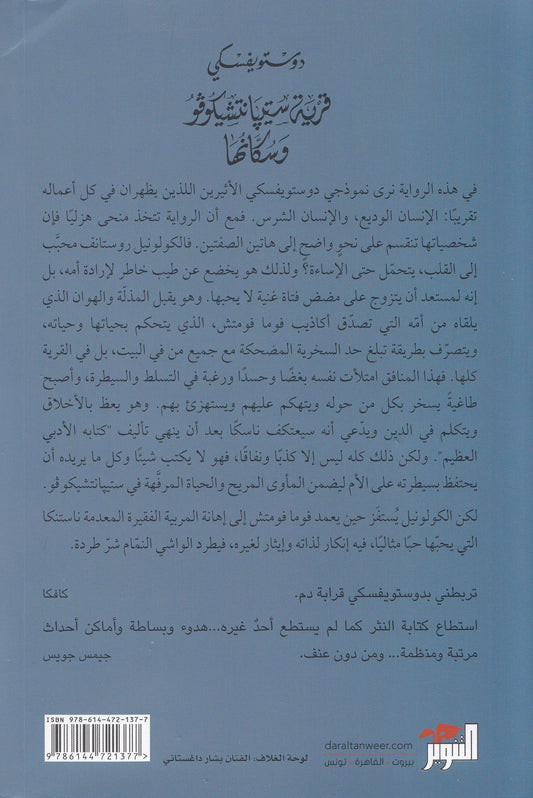 دوستويفسكي
قرية ستيپانتشيكوڤو
وسكّانُها
في هذه الرواية نرى نموذجي دوستويفسكي الأثيرين اللذين يظهران في كل أعماله
تقريبًا: الإنسان الوديع، والإنسان الشرس. فمع أن الرواية تتخذ منحى هزليًا فإن
شخصياتها تنقسم على نحوٍ واضح إلى هاتين الصفتين. فالكولونيل روستانف محبَّب
إلى القلب، يتحمّل حتى الإساءة؟ ولذلك هو يخضع عن طيب خاطر لإرادة أمه، بل
إنه لمستعد أن يتزوج على مضض فتاة غنية لا يحبها. وهو يقبل المذلّة والهوان الذي
يلقاه من أمّه التي تصدّق أكاذيب فوما فومتش، الذي يتحكم بحياتها وحياته،
ويتصرّف بطريقة تبلغ حد السخرية المضحكة مع جميع من في البيت، بل في القرية
كلها. فهذا المنافق امتلأت نفسه بغضًا وحسدًا ورغبة في التسلط والسيطرة، وأصبح
طاغيةً يسخر بكل من حوله ويتهكم عليهم ويستهزئ بهم. وهو يعظ بالأخلاق
ويتكلم في الدين ويدّعي أنه سيعتكف ناسكًا بعد أن ينهي تأليف "كتابه الأدبي
العظيم". ولكن ذلك كله ليس إلا كذبًا ونفاقًا، فهو لا يكتب شيئًا وكل ما يريده أن
يحتفظ بسيطرته على الأم ليضمن المأوى المريح والحياة المرفّهة في ستيپانتشيكوڤو.
لكن الكولونيل يُستفَز حين يعمد فوما فومتش إلى إهانة المربية الفقيرة المعدمة ناستنكا
التي يحبّها حبًا مثاليًا، فيه إنكار لذاته وإيثار لغيره، فيطرد الواشي النمّام شرّ طردة.
تربطني بدوستويفسكي قرابة دم. كافكا
استطاع كتابة النثر كما لم يستطع أحدٌ غيره...هدوء وبساطة وأماكن أحداث
مرتبة ومنظمة... ومن دون عنف. جيمس جويس
ISBN 978-614-472-137-7
9 786144 721377
لوحة الغلاف: الفنان بشار داغستاني
daraltanweer.com
بيروت - القاهرة - تونس
التنوير